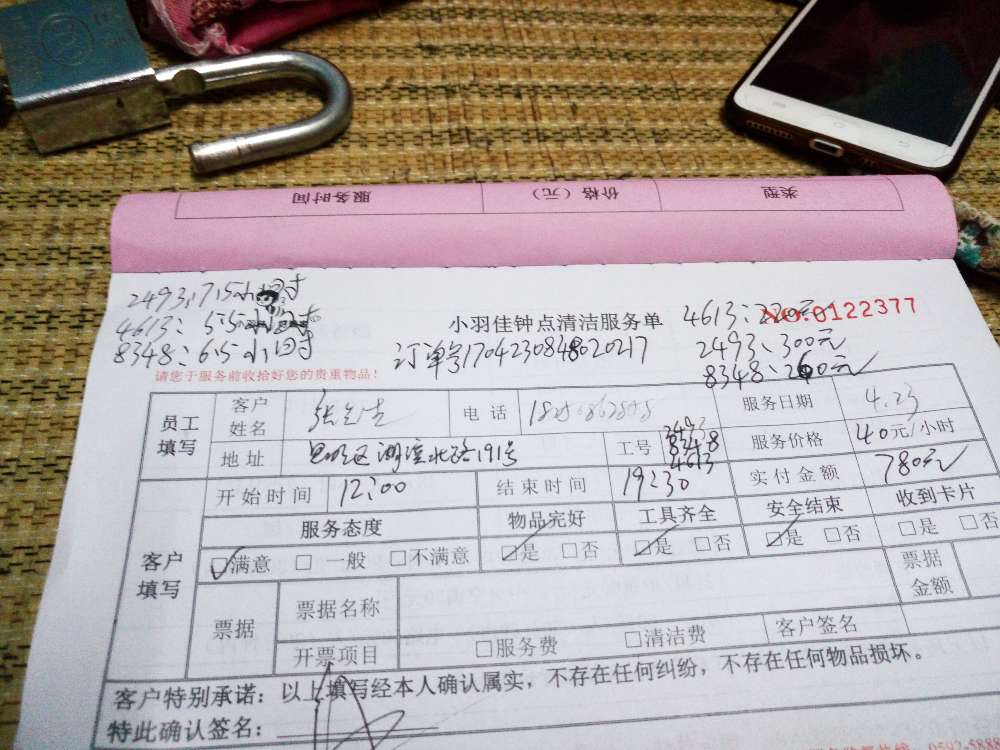 服务时间 价格（元） 类型
2493:7.5小时
4613: 5.5小时
8348: 6.5小时
小羽佳钟点清洁服务单
4613:220元
NO.0122377
订单号1704230848020217
2493、300元
8348、260元
请您于服务前收拾好您的贵重物品！
员工填写 客户姓名 张 电话 服务日期 4.23
地址 思明区湖滨北路191号 工号 2493 8348 4613 服务价格 40元/小时
客户填写 开始时间 12:00 结束时间 19:30 实付金额 780元
服务态度 物品完好 工具齐全 安全结束 收到卡片
□满意 □一般 □不满意 □是 □否 □是 □否 □是 □否 □是 □否
票据 票据名称 票据金额
开票项目 □服务费 □清洁费 客户签名
客户特别承诺：以上填写经本人确认属实，不存在任何纠纷，不存在任何物品损坏。
特此确认签名：
0592-5888